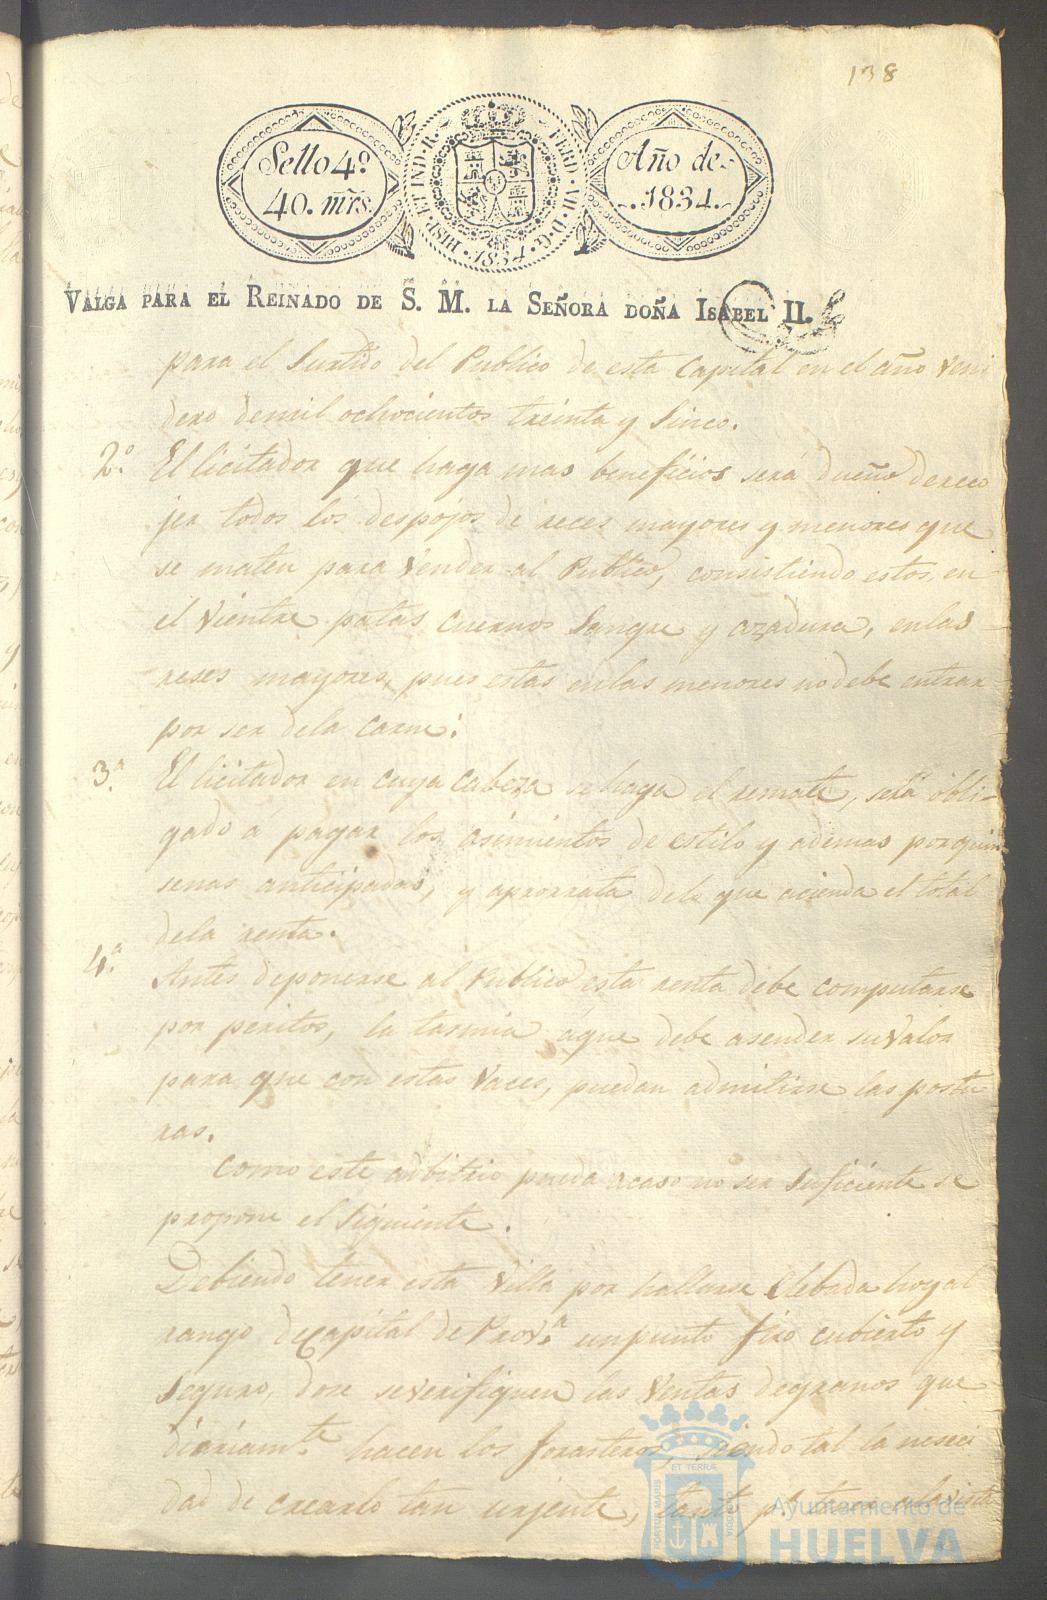 138
Sello 4º
40. mrs.
HISP. ET IND. R. FERD. VII. D. G. 1834.
Año de
1834.
VALGA PARA EL REINADO DE S. M. LA SEÑORA DOÑA ISABEL II.
para el Surtido del Publico de esta Capital en el año veni
dero demil ochocientos treinta y Sinco.
2º. El licitador que haga mas beneficios será dueño dereco
jer todos los despojos de reces mayores y menores que
se maten para vender al Publico, consistiendo estos, en
el Vientre patas cuernos Sangre y azadura, enlas
reses mayores, pues estas enlas menores no debe entrar
por ser dela carne.
3ª. El licitador en cuya cabeza se haga el remate, será obli-
gado á pagar los asimientos de estilo y ademas por quin
senas anticipadas, y aprorrata delo que acienda el total
dela renta.
4ª. Antes deponerse al Publico esta renta debe computarse
por peritos, la tasmia áque debe asender suvalor
para que con estas Vaces, puedan admitirse las postu
ras.
Como este adbitrio pueda acaso no ser suficiente se
propone el Siguiente.
Debiendo tener esta Villa por hallarse Elebada hoy al
rango deCapital de Provª. unpunto fixo cubierto y
Seguro, dose severifiquen las Ventas degranos que
diariamte. hacen los forasteros, siendo tal la neseci
dad de crearlo tan urjente, tanto pr.
ET TERRÆ
PORTUS MARIS
CUSTODIA
Ayuntamiento de
HUELVA